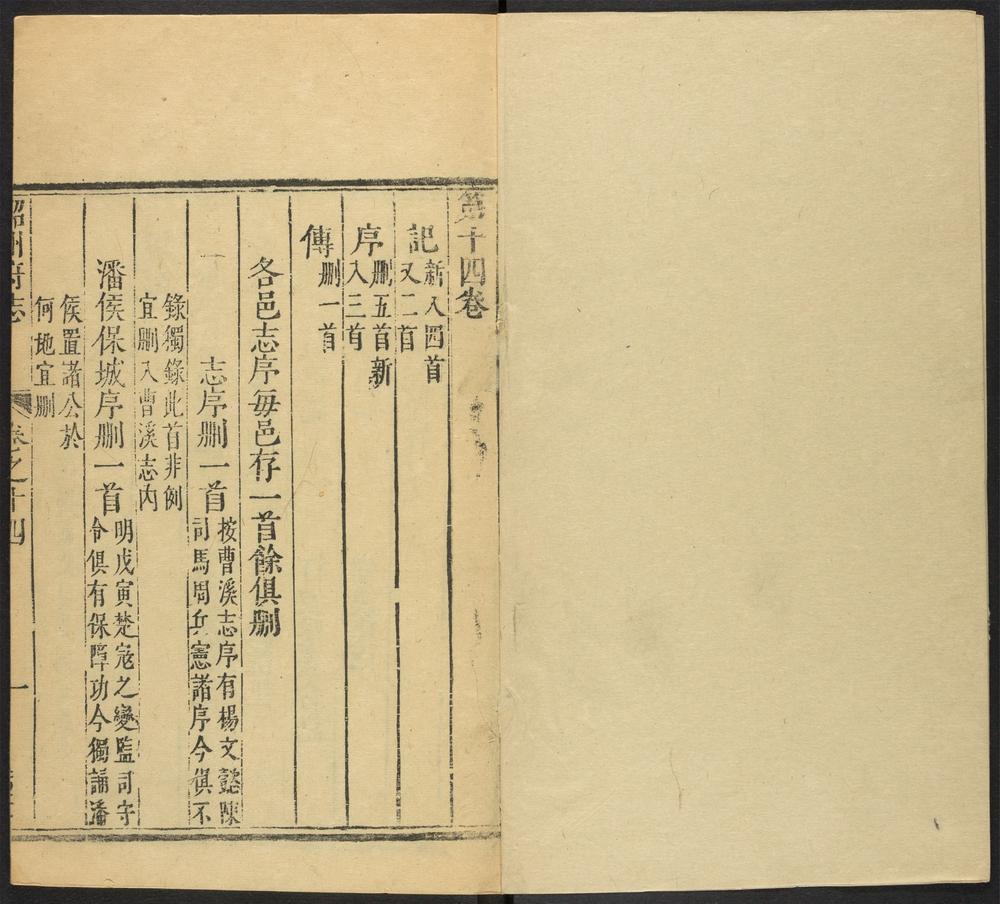 第十四卷
記
新入四首
又二首
序
刪五首新
入三首
傳
刪一首
各邑志序每邑存一首餘俱刪
志序刪一首
按曹溪志序有楊文懿陳
司馬周兵憲諸序今俱不
錄獨錄此首非例
宜刪入曹溪志內
潘侯保城序刪一首
明戊寅楚寇之變監司守
令俱有保障功今獨誦潘
侯置諸公於
何地宜刪
韶州府志
卷之十四
一